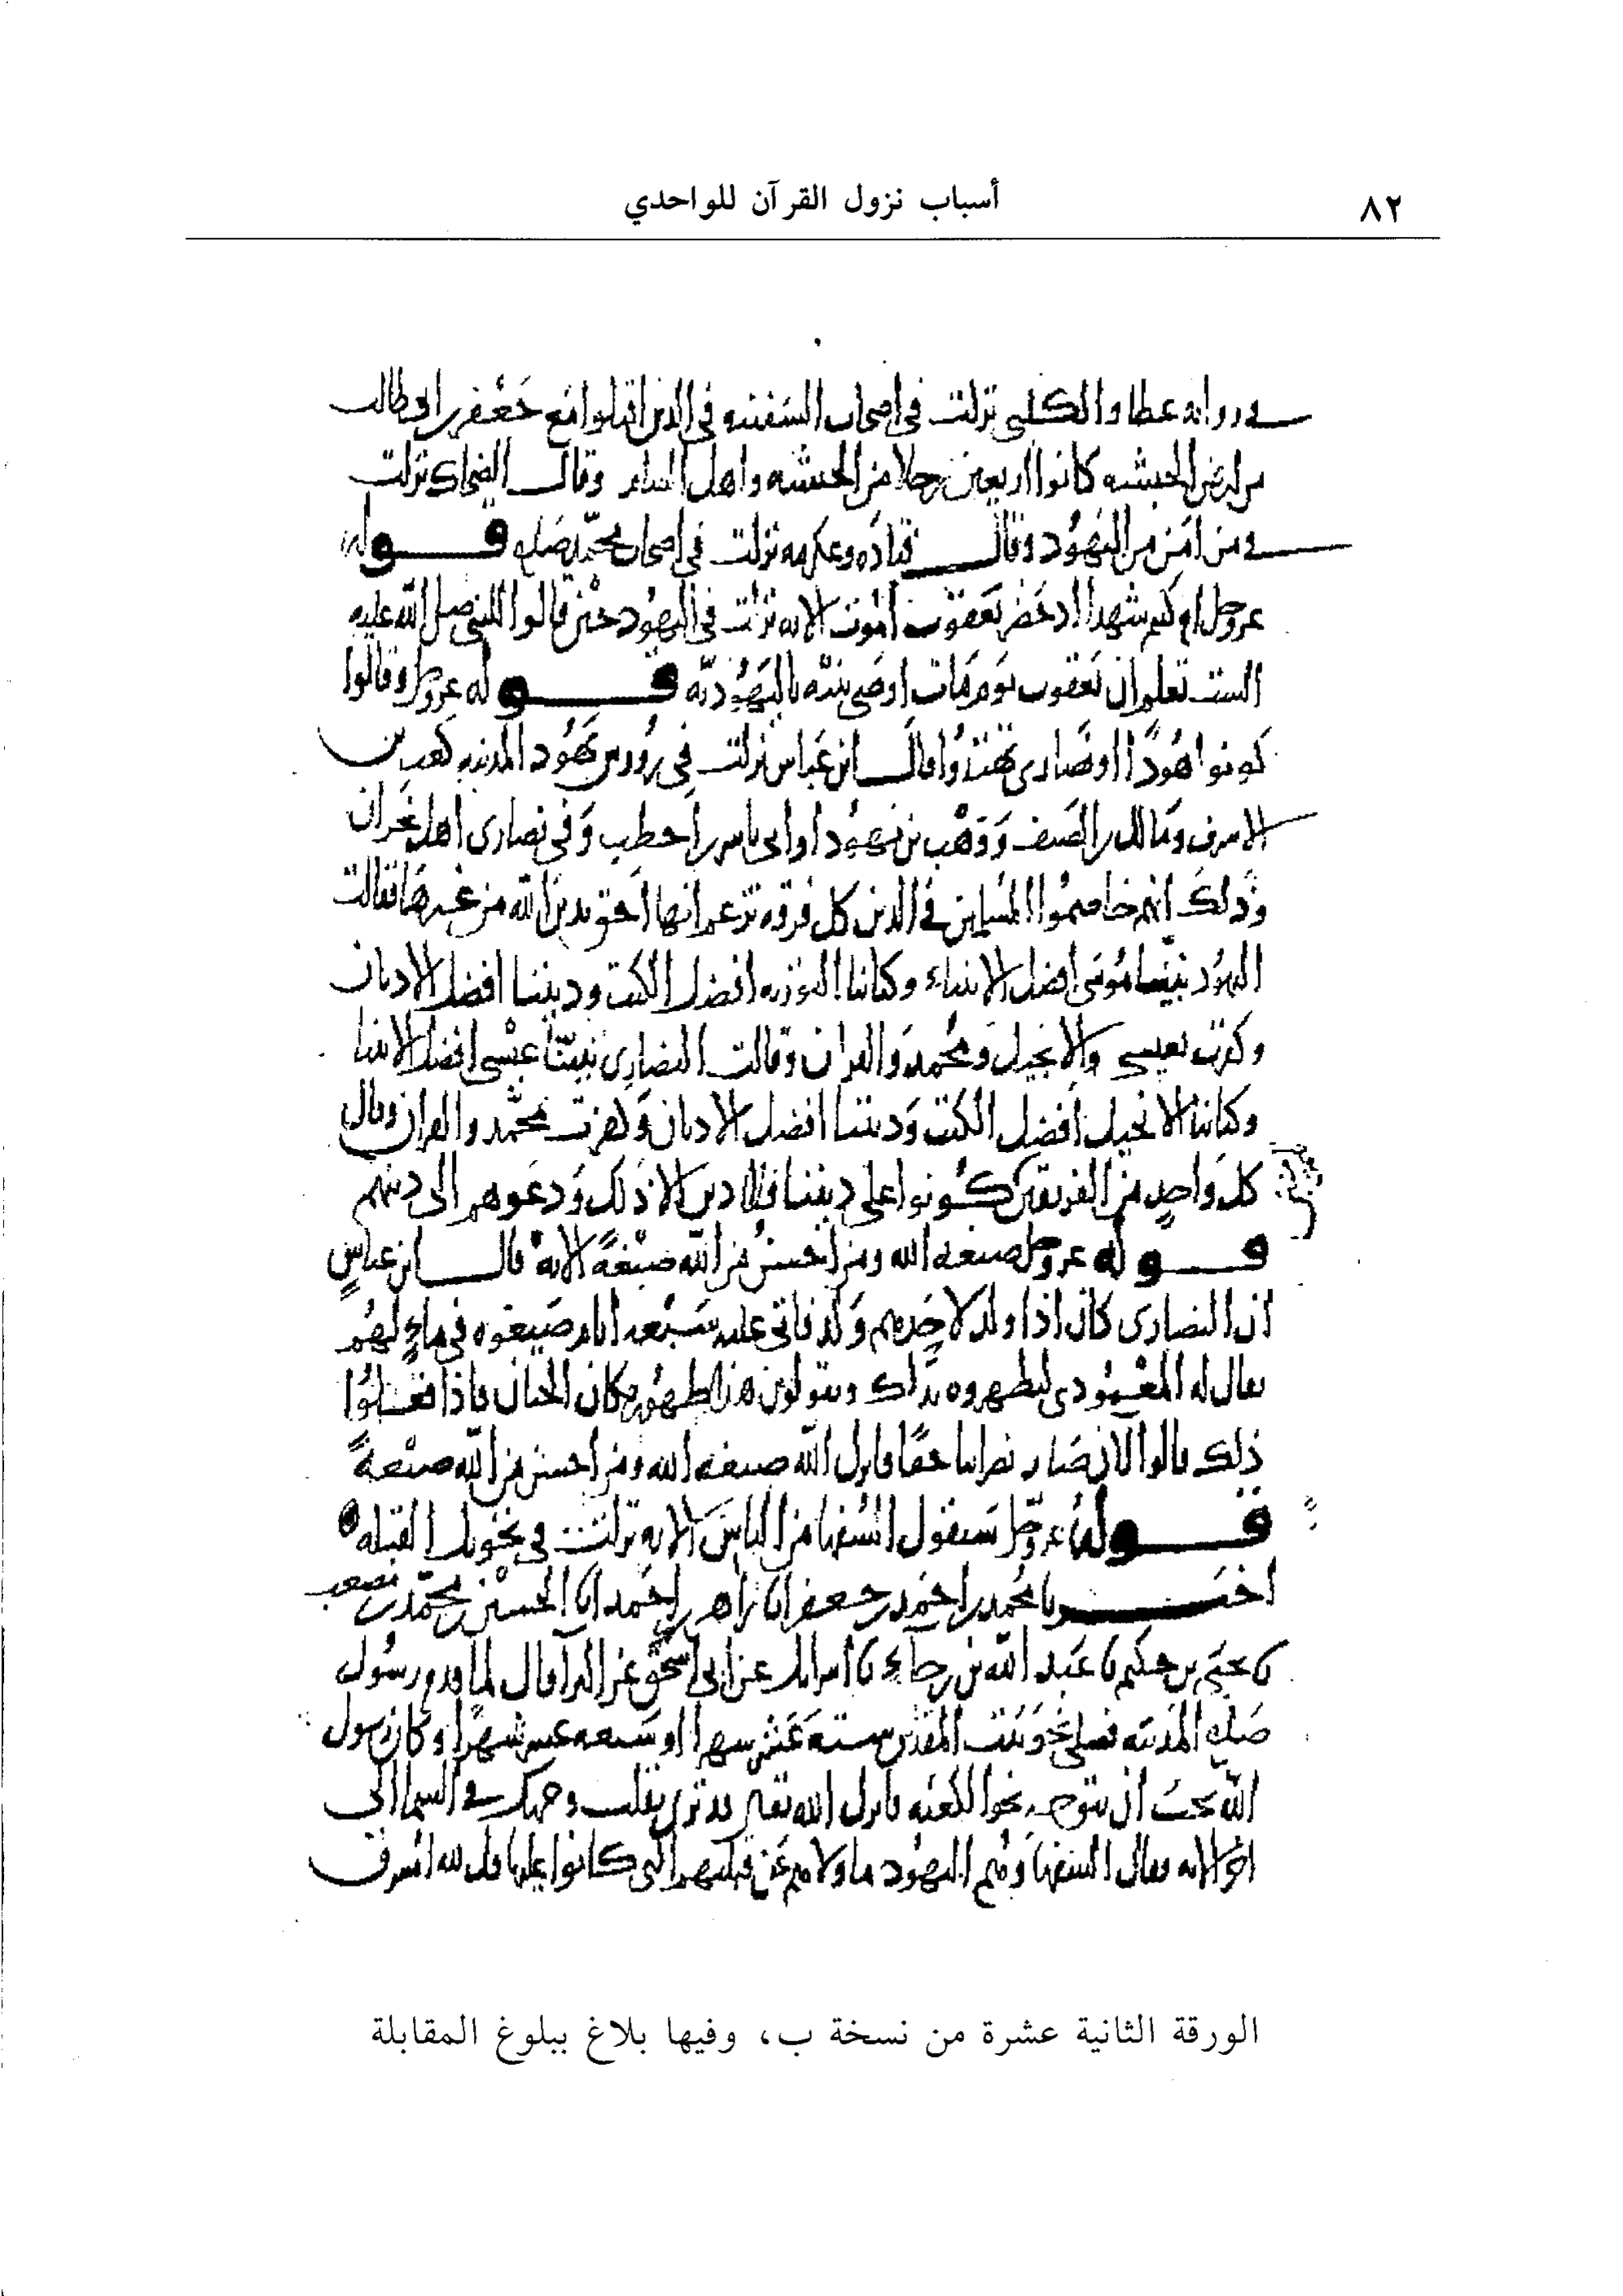 ٨٢
أسباب نزول القرآن للواحدي
في رواية عطا والكلبي نزلت في اصحاب السفينه في الذين اقبلوا مع جعفر بن ابي طالب
من ارض الحبشه كانوا اربعين رجلا من الحبشه واهل الشام وقال الضحاك نزلت
في من امن من اليهود وقال قتاده وعكرمه نزلت في اصحاب محمد صلع قوله
عز وجل ام كنتم شهدا اذ حضر يعقوب الموت الايه نزلت في اليهود حين قالوا للنبي صلى الله عليه
الست تعلم ان يعقوب يوم مات اوصى بنيه باليهوديه قوله عز وجل وقالوا
كونوا هودًا او نصارى تهتدوا قال ابن عباس نزلت في روس يهود المدينه كعب بن
الاشرف ومالك بن الصيف ووهب بن يهودا وابي ياسر بن احطب وفي نصارى اهل نجران
وذلك انهم خاصموا المسلمين في الدين كل فرقه تزعم انها احق بدين الله من غيرها فقالت
اليهود نبينا موسى افضل الانبياء وكتابنا التوريه افضل الكتب وديننا افضل الاديان
وكفرت بعيسى والانجيل ومحمد والقران وقالت النصارى نبينا عيسى افضل الانبيا
وكتابنا الانجيل افضل الكتب وديننا افضل الاديان وكفرت بمحمد والقران وقال
كل واحدٍ من الفريقين كونوا على ديننا فلا دين الا ذلك ودعوهم الى دينهم
قوله عز وجل صبغه الله ومن احسن من الله صبغةً الايه قال ابن عباسٍ
ان النصارى كان اذا ولد لاحدهم ولد فاتى عليه سبعه ايام صبغوه في ماءٍ لهم
يقال له المعمودي ليطهروه بذلك ويقولون هذا طهور مكان الختان فاذا فعلوا
ذلك قالوا الان صار نصرانيا حقًا فانزل الله صبغه الله ومن احسن من الله صبغةً
قوله عز وجل سيقول السفها من الناس الايه نزلت في تحويل القبله
اخبرنا محمد بن احمد بن جعفر انا زاهر بن احمد انا الحسين بن محمد بن مصعب
نا يحيى بن حكيم نا عبد الله بن رجاء نا اسرائيل عن ابي اسحق عن البرا قال لما قدم رسول
صلع المدينه فصلى نحو بيت المقدس سته عشر شهرا او سبعه عشر شهرًا وكان رسول
الله يحب ان يتوجه نحو الكعبه فانزل الله تعالى قد نرى تقلب وجهك في السما الى
اخر الايه فقال السفها وهم اليهود ما ولاهم عن قبلتهم التي كانوا عليها قل لله المشرق
الورقة الثانية عشرة من نسخة ب، وفيها بلاغ ببلوغ المقابلة